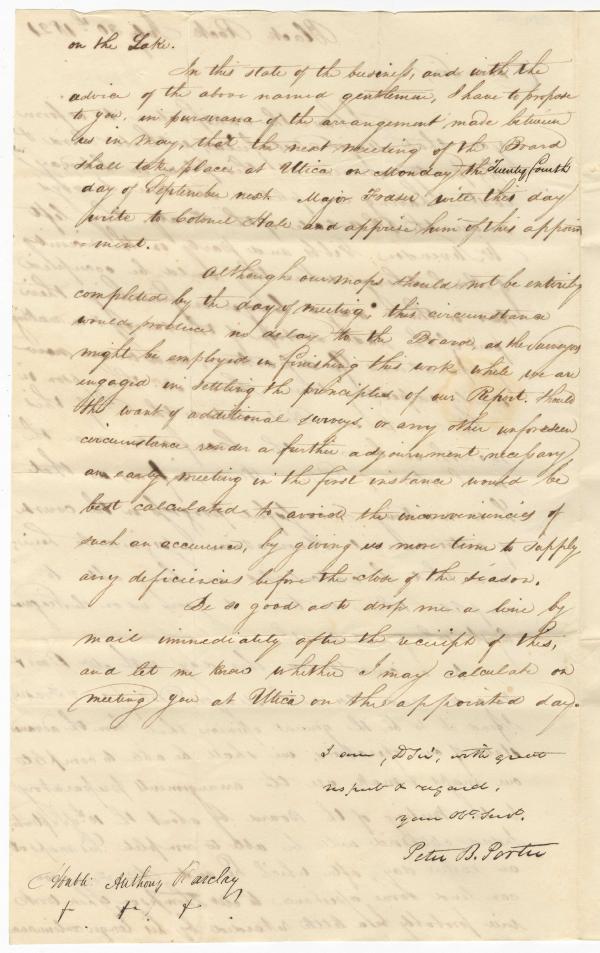 on the Lake.
In this state of the business, and with the
advice of the above named gentlemen, I have to propose
to you, in pursuance of the arrangement made between
us in May, that the next meeting of the Board
shall take place at Utica on Monday the Twenty fourth
day of September next. Major Fraser will this day
write to Colonel Hale and apprise him of this appoint
-ment.
Although our maps should not be entirely
completed by the day of meeting, this circumstance
would produce no delay to the Board, as the Surveyors
might be employed in finishing this work while we are
engaged in settling the principles of our Report. Should
the want of additional surveys, or any other unforeseen
circumstance render a further adjournment necessary
an early meeting in the first instance would be
best calculated to avoid the inconveniencies of
such an occurrence, by giving us more time to supply
any deficiences before the close of the season.
Be so good as to drop me a line by
mail immediately after the receipt of this,
and let me know whether I may calculate on
meeting you at Utica on the appointed day.
I am, D Sir, with great
respect & regard,
your Obt. Servt.
Peter B. Porter
Honble Anthony Barclay